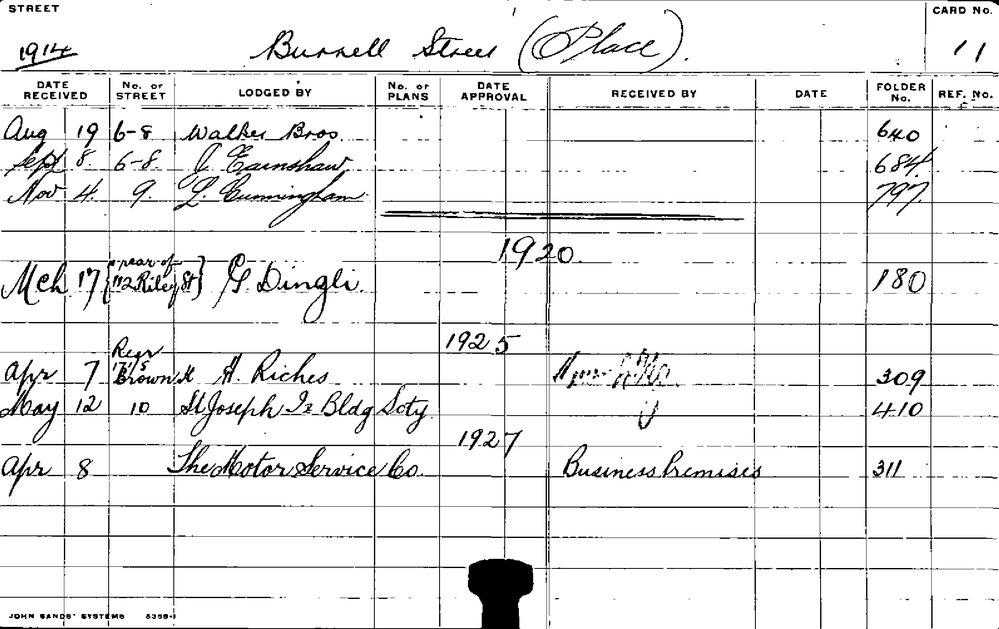 STREET
CARD No.
1914 Burnell Street (Place). 11
DATE RECEIVED No. OF STREET LODGED BY No. OF PLANS DATE APPROVAL RECEIVED BY DATE FOLDER No. REF. No.
Aug 19 6-8 Walker Bros. 640
Sept 8. 6-8. J. Earnshaw 684.
Nov 4. 9. L. Cunningham 797.
1920.
Mch 17 {rear of 112 Riley St} G. Dingli. 180
1925
Apr 7 Rear 171/5 Brown St H. Riches 309
May 12 10 St Joseph Iz Bldg Scty. 410
1927
Apr 8 The Motor Service Co. Business Premises 311
JOHN SANDS' SYSTEMS